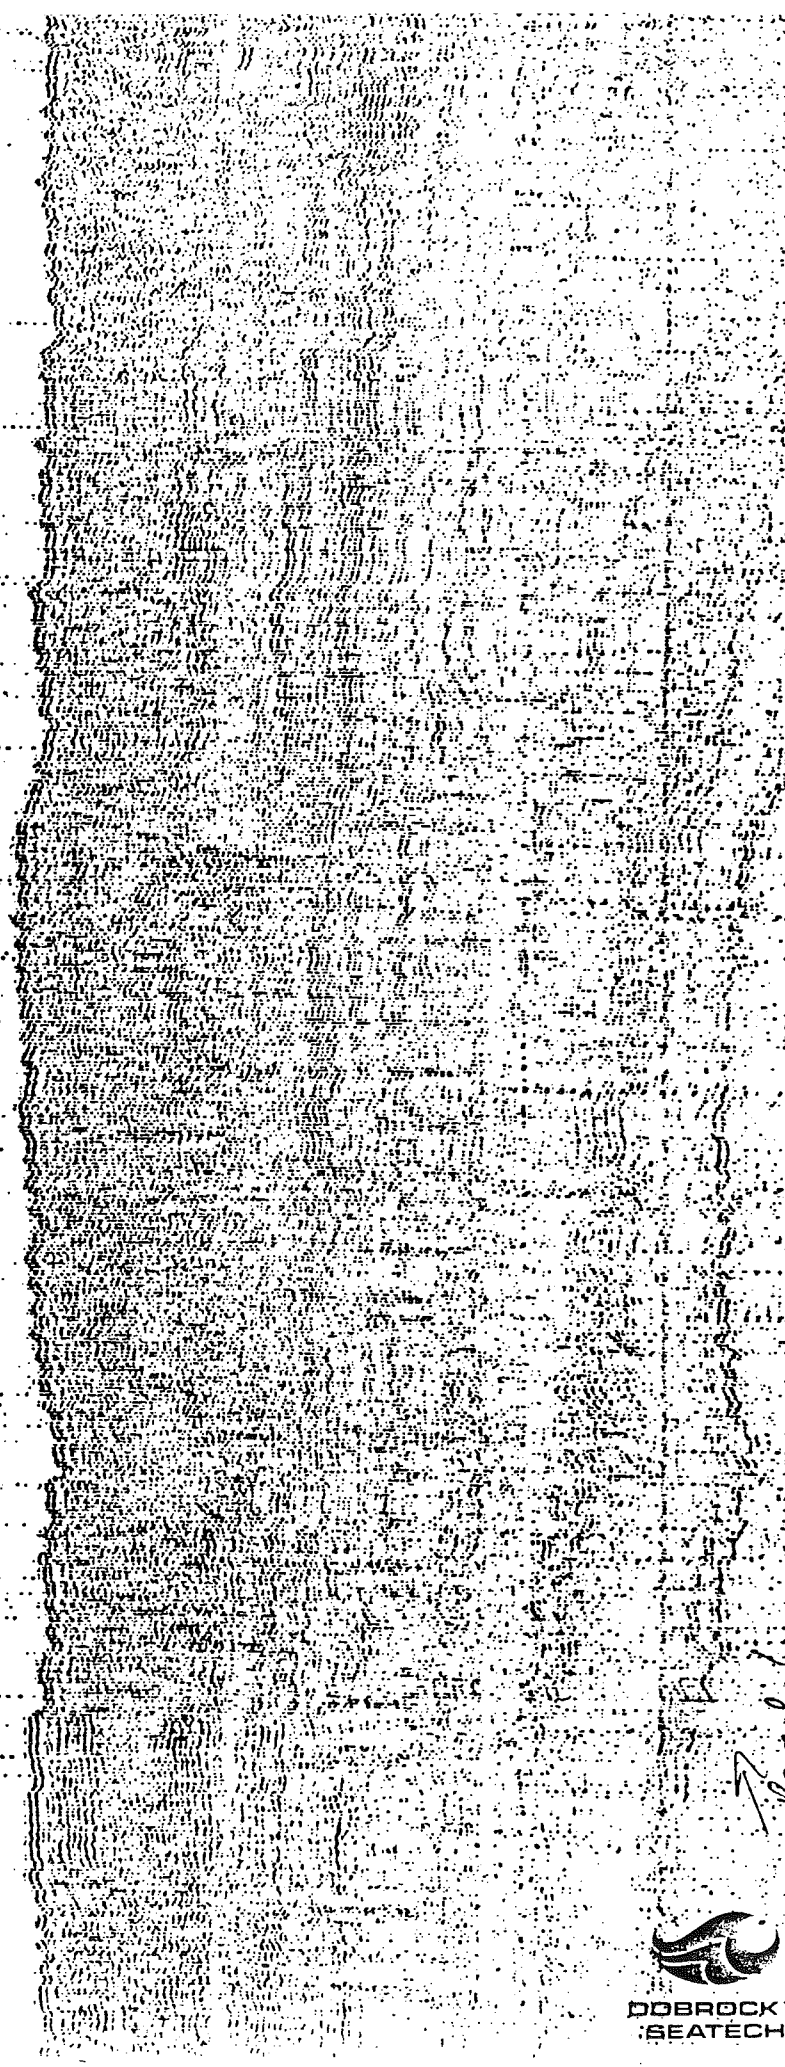 DOBROCK
SEATECH